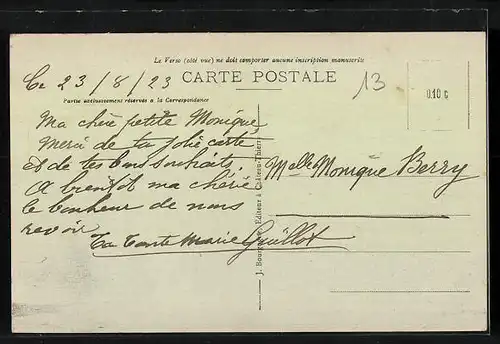 Le Verso (côté vue) ne doit comporter aucune inscription manuscrite
Ce 23/8/23
CARTE POSTALE
13
0.10 c
Partie exclusivement réservée à la Correspondance
Ma chère petite Monique
Merci de ta jolie carte
et de tes bons souhaits
A bientôt ma chérie
le bonheur de nous
revoir
Ta tante Marie Guillot
Melle Monique Berry
Editeur à Château-Thierry